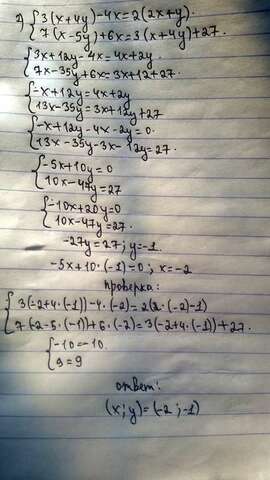 2) { 3(x+4y)-4x=2(2x+y).
7(x-5y)+6x=3(x+4y)+27.
{ 3x+12y-4x=4x+2y
7x-35y+6x=3x+12+27.
{ -x+12y=4x+2y
13x-35y=3x+12y+27
{ -x+12y-4x-2y=0.
13x-35y-3x-12y=27.
{ -5x+10y=0
10x-47y=27
{ -10x+20y=0
10x-47y=27.
-27y=27; y=-1
-5x+10·(-1)=0; x=-2
проверка:
{ 3(-2+4·(-1))-4·(-2)=2(2·(-2)-1)
7(-2-5·(-1))+6·(-2)=3(-2+4·(-1))+27.
{ -10=-10.
9=9
ответ:
(x;y)=(-2;-1)